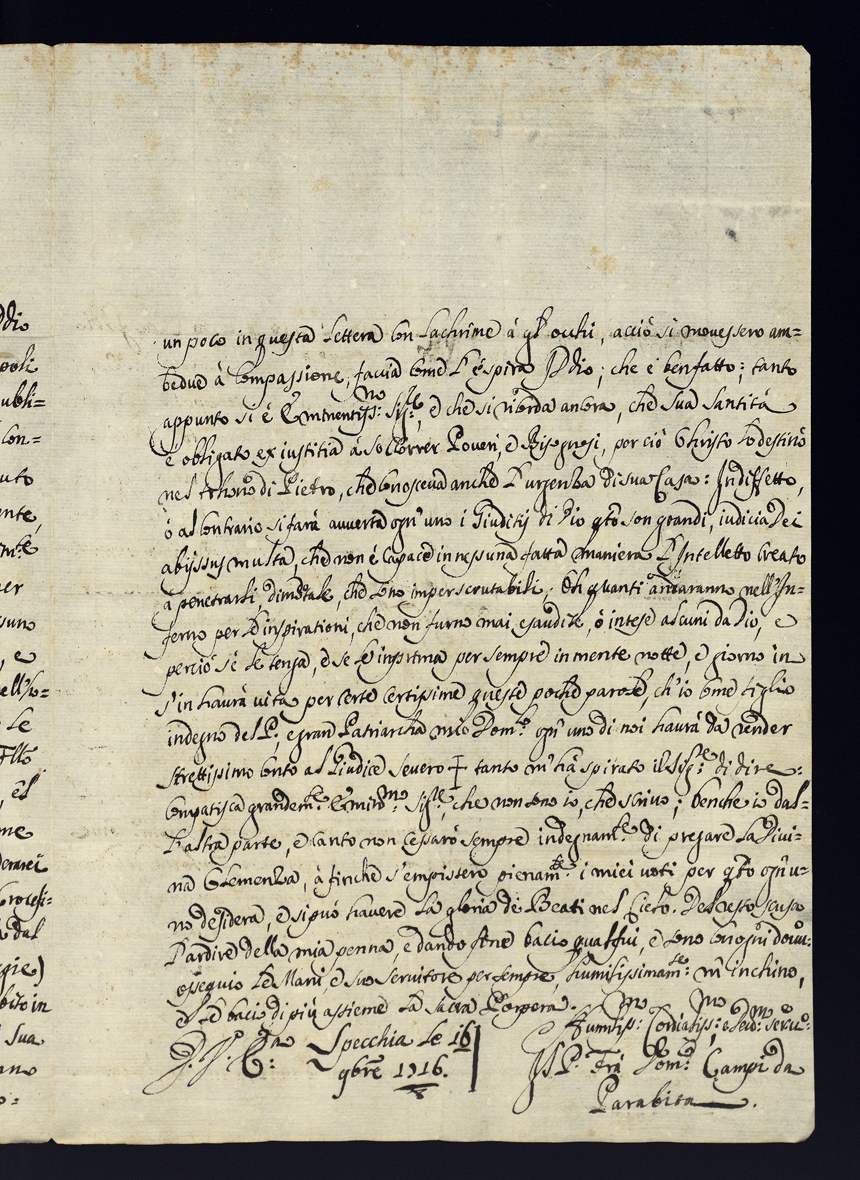 un poco in questa lettera con lachrime à gl'occhi, acciò si movessero am=
bedue à compassione, faccia come l'espira Iddio; che è benfatto; tanto
appunto si è Eminentiss:mo Sig:re, e che si ricorda ancora, che sua Santità
è obligato ex iustitia à soccorrer Poveri, e Bisognosi, perciò Christo lo destinò
nel trhono di Pietro, che conosceva anche l'urgenza di sua Casa: In difetto,
ò al contrario si farà avverta ogn'uno i Giuditij di Dio q.to son grandi, iudicia Dei
abijssus multa, che non è capace in nessuna fatta maniera l'Intelletto creato
a penetrarli dimodale, che sono imperscrutabili; Oh quanti anderanno nell'In=
ferno per l'inspirationi, che non furno mai esaudite, ò intese alcuni da Dio, e
perciò sè le tenga, e se l'imprima per sempre in mente notte, e giorno in
s'in havrà vita per certe certissime queste poche parole, ch'io come figlio
indegno del P., e gran Patriarcha mio Dom:co ogn'uno di noi havrà da render
strettissimo conto al Giudice severo + tanto m'hà spirato il Sig:re di dire:
compatisca grandem:te Emin:mo Sig:re, che non sono io, che scrivo; benche io dal=
l'altra parte, e canto non cessarò sempre indegnam:te di pregare la Divi=
na Clemenza, à finche s'empissero pienam:te i miei voti per q.to ogn'u=
no desidera, e si può havere la gloria de Beati nel Cielo. Del resto scusa
l'ardire della mia penna, e dando fine bacio quassui, e sono con ogni dovu:
ossequio le Mani, e suo servitore per sempre, humilissimam:te m'inchino,
e le bacio di più assieme la sacra Porpora.
Specchia le 16
9bre 1716.
Humiliss:mo Cordialiss:mo e Dev:mo serv:e
Il P. Frà Dom:co Campi da
Parabita